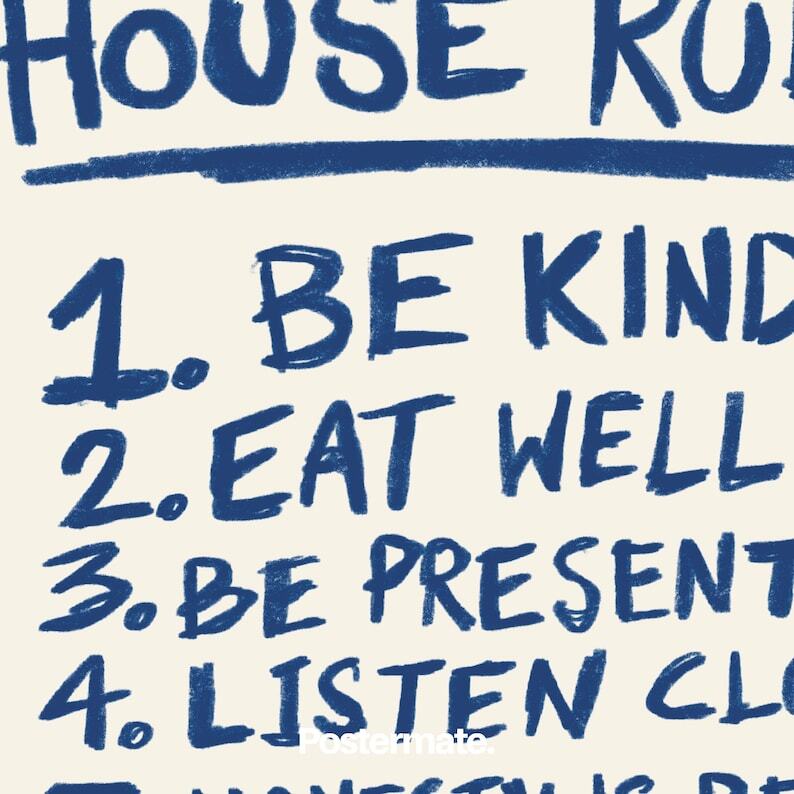 HOUSE RU
1. BE KIND
2. EAT WELL
3. BE PRESENT
4. LISTEN CLO
Postermate.
HONESTY IS BE